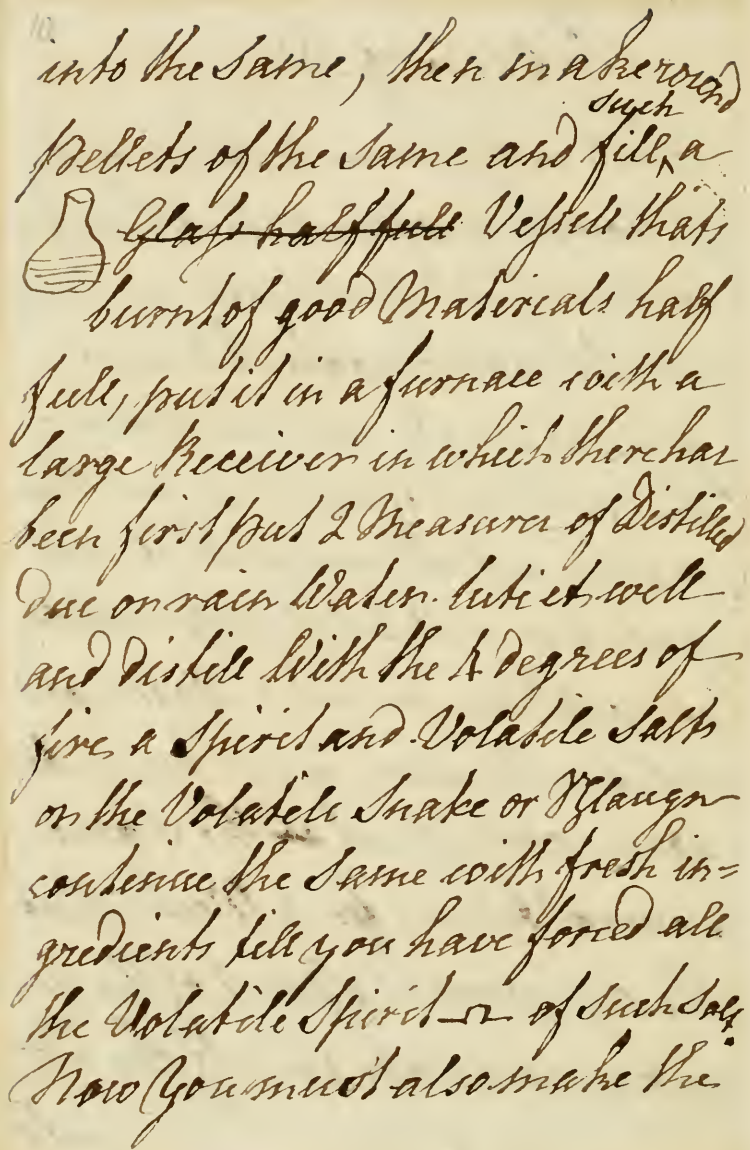 10
into the Same, then make round
Pellets of the Same and fill such a
Glass half full Vessell thats
burnt of good Materials half
full, put it in a furnace with a
large Receiver in which there has
been first put 2 Measures of Distilled
Due or rain Water. lute it well
and Distill With the 4 Degrees of
fire, a Spirit and Volatile Salts
or the Volatile Snake or
continue the Same with fresh in=
gredients till you have forced all
the Volatile Spirit of Such Salt.
Now You must also make the